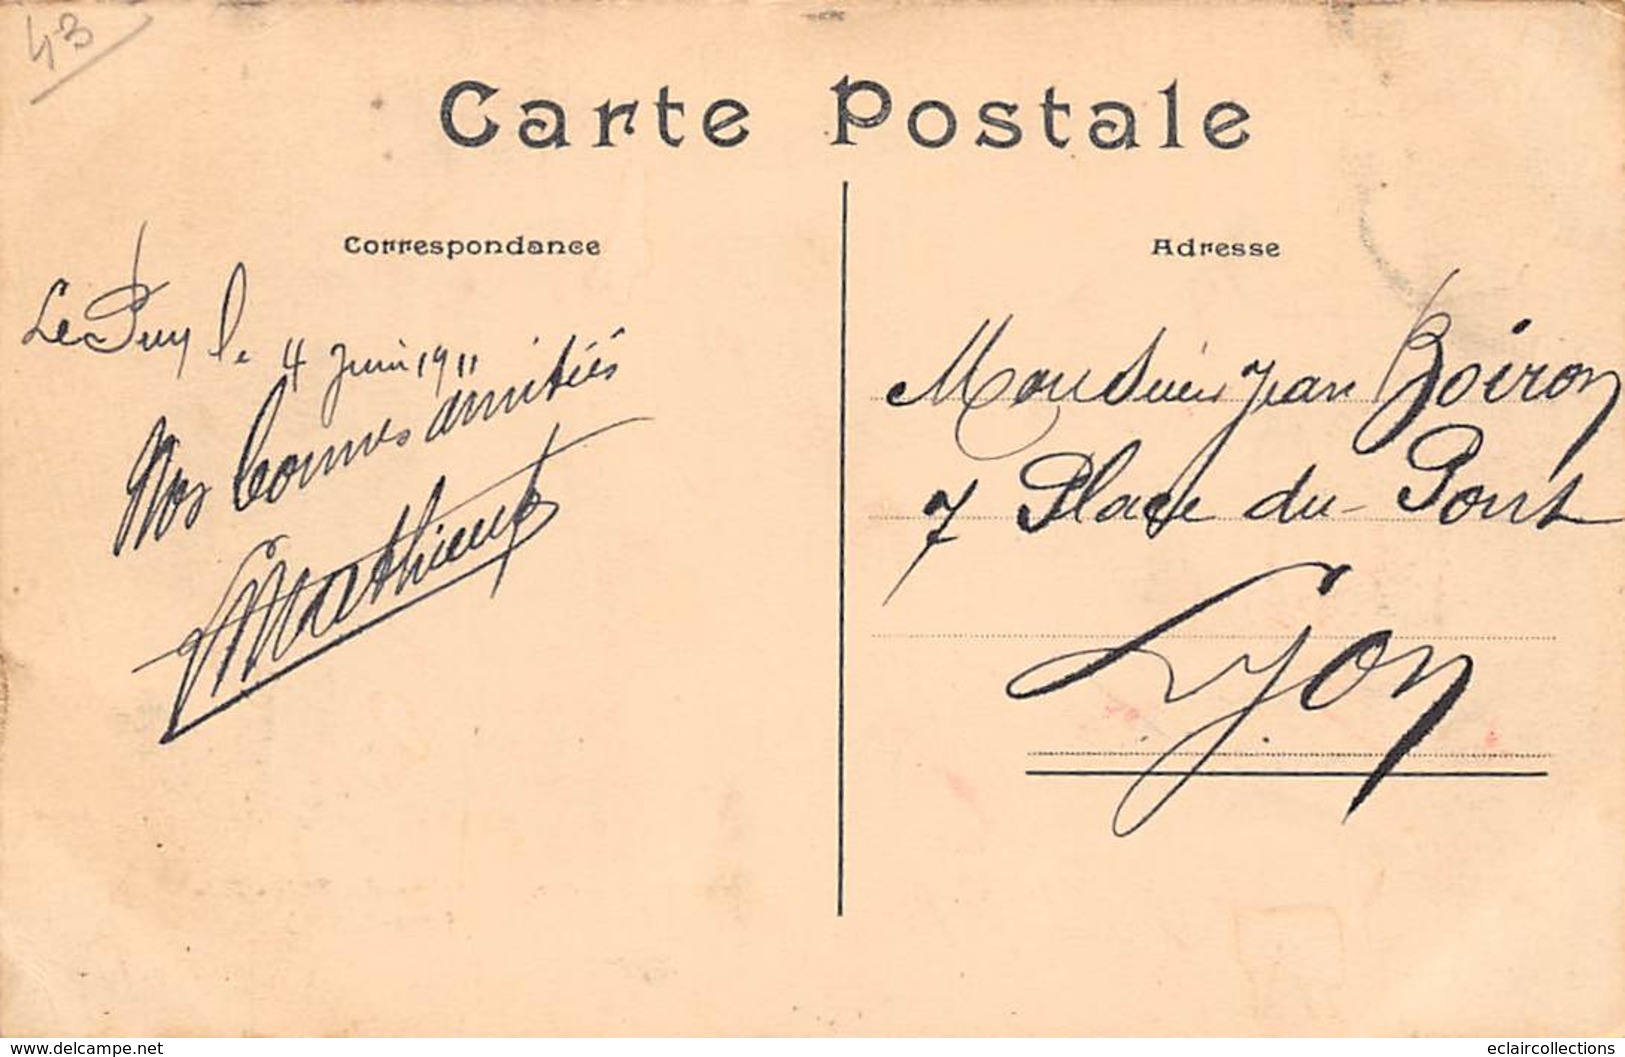 43
Carte Postale
Correspondance
Le Puy le 4 Juin 1911
Nos bonnes amitiés
Mathieu
Adresse
Monsieur Jean Boiron
7 Place du Pont
Lyon
www.delcampe.net
eclaircollections